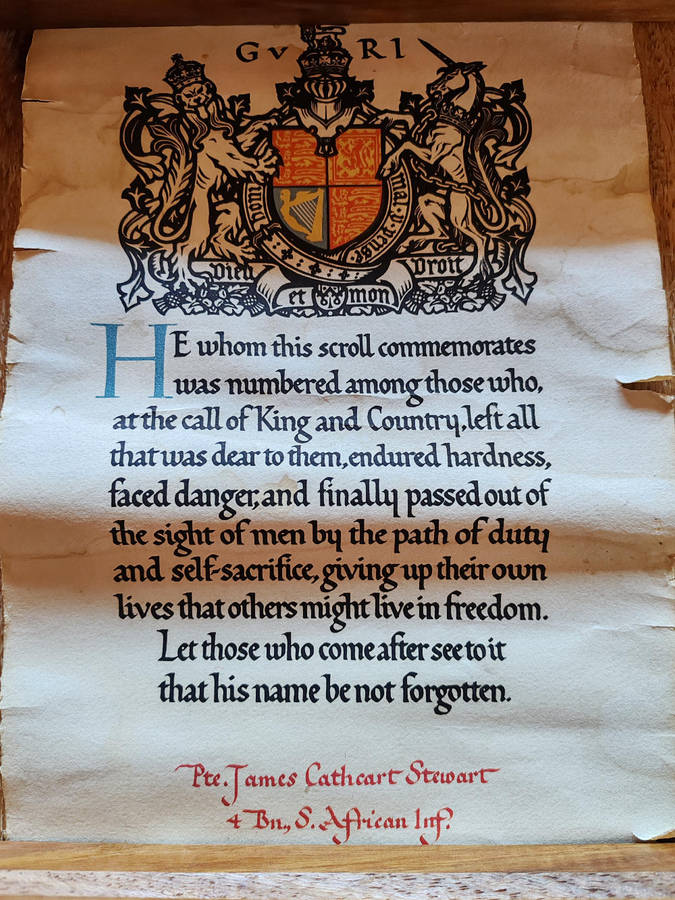 GvRI
Dieu et mon Droit
HE whom this scroll commemorates
was numbered among those who,
at the call of King and Country, left all
that was dear to them, endured hardness,
faced danger, and finally passed out of
the sight of men by the path of duty
and self-sacrifice, giving up their own
lives that others might live in freedom.
Let those who come after see to it
that his name be not forgotten.
Pte. James Cathcart Stewart
4 Bn., S. African Inf.